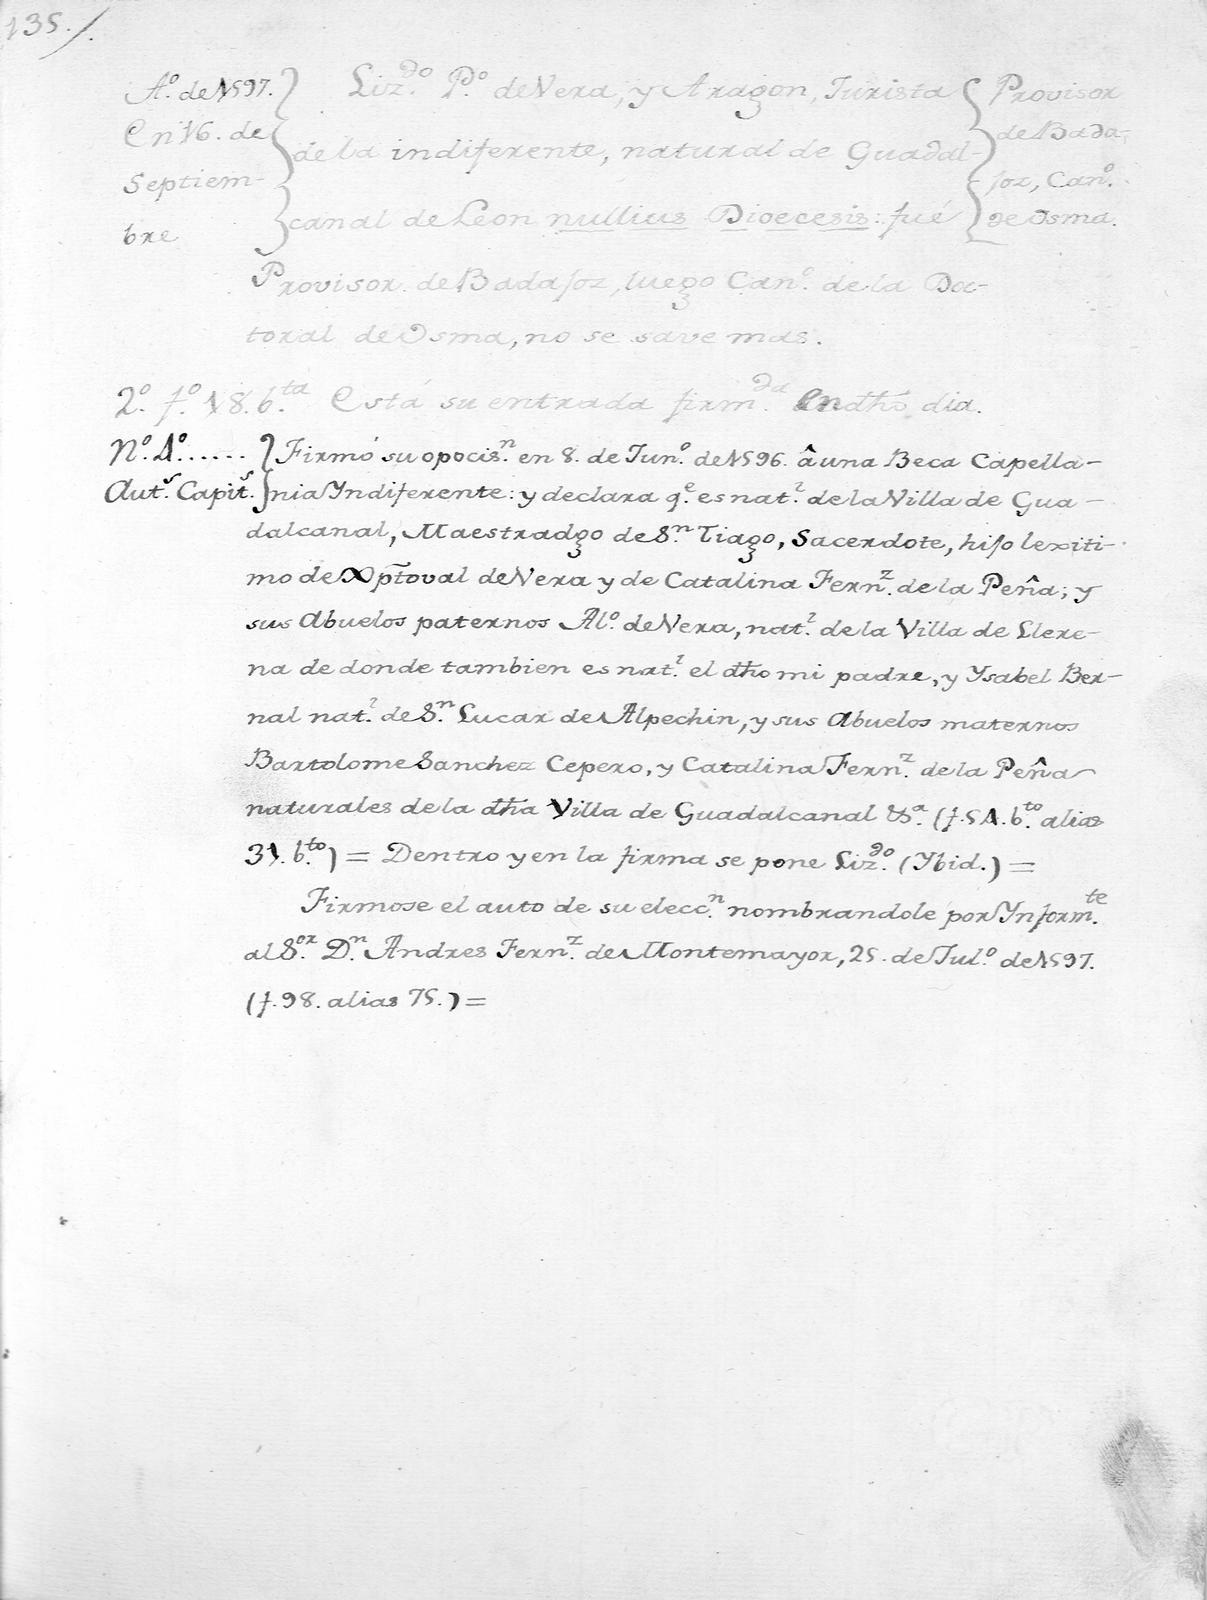 135./.
Aº. de 1597.
En 16. de
Septiem-
bre
Lizdo. Pº. de Vera, y Aragon, Jurista
de la indiferente, natural de Guadal-
canal de Leon nullius Diocesis: fué
Provisor
de Bada-
joz, Canº.
de Osma.
Provisor de Badajoz, luego Canº. de la Do-
toral de Osma, no se save mas.
2º. fº. 18. bta. Está su entrada firmda. en dho dia.
Nº. 1º......
Auts. Capits.
Firmó su opocisn. en 8. de Junº. de 1596. â una Beca Capella-
nia Yndiferente: y declara qe. es natl. de la Villa de Gua-
dalcanal, Maestradgo de Sn. Tiago, Sacerdote, hijo lexiti-
mo de Xptoval de Vera y de Catalina Fernz. de la Peña; y
sus Abuelos paternos Alº. de Vera, natl. de la Villa de Llere-
na de donde tambien es natl. el dho mi padre, y Ysabel Ber-
nal natl. de Sn. Lucar de Alpechin, y sus Abuelos maternos
Bartolome Sanchez Cepero, y Catalina Fernz. de la Peña
naturales de la dha Villa de Guadalcanal &a. (f. 51. bto. alias
31. bto.) = Dentro y en la firma se pone Lizdo. (Ybid.) =
Firmose el auto de su eleccn. nombrandole por Ynformte.
al Sor. Dn. Andres Fernz. de Montemayor, 25. de Julº. de 1597.
(f. 98. alias 75.) =